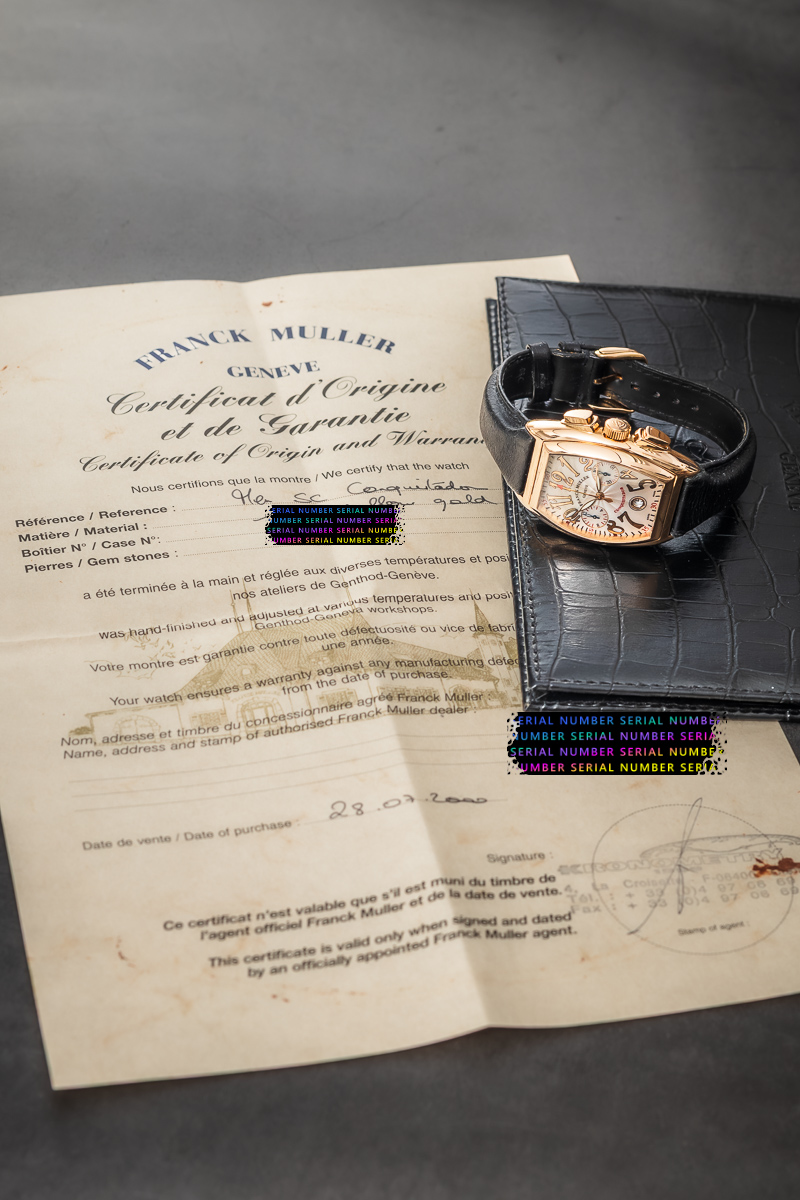 FRANCK MULLER
GENEVE
Certificat d'Origine
et de Garantie
Certificate of Origin and Warran
Nous certifions que la montre / We certify that the watch
Référence / Reference : SC Conquistador
Matière / Material : gold
Boîtier N° / Case N°:
Pierres / Gem stones :
SERIAL NUMBER SERIAL NUMB
UMBER SERIAL NUMBER SERIA
SERIAL NUMBER SERIAL NUMBE
UMBER SERIAL NUMBER SERIA
a été terminée à la main et réglée aux diverses températures et posi
nos ateliers de Genthod-Genève.
was hand-finished and adjusted at various temperatures and posi
Genthod-Geneva workshops.
Votre montre est garantie contre toute défectuosité ou vice de fabri
une année.
Your watch ensures a warranty against any manufacturing defec
from the date of purchase.
Nom, adresse et timbre du concessionnaire agréé Franck Muller
Name, address and stamp of authorised Franck Muller dealer :
SERIAL NUMBER SERIAL NUMBE
UMBER SERIAL NUMBER SERIA
SERIAL NUMBER SERIAL NUMBE
UMBER SERIAL NUMBER SERIA
Date de vente / Date of purchase : 28.07.2000
Signature :
4, La Croisette, F-06400
Tél. : + 33 (0)4 97 06 69
Fax : + 33 (0)4 97 06 69
Stamp of agent :
Ce certificat n'est valable que s'il est muni du timbre de
l'agent officiel Franck Muller et de la date de vente.
This certificate is valid only when signed and dated
by an officially appointed Franck Muller agent.